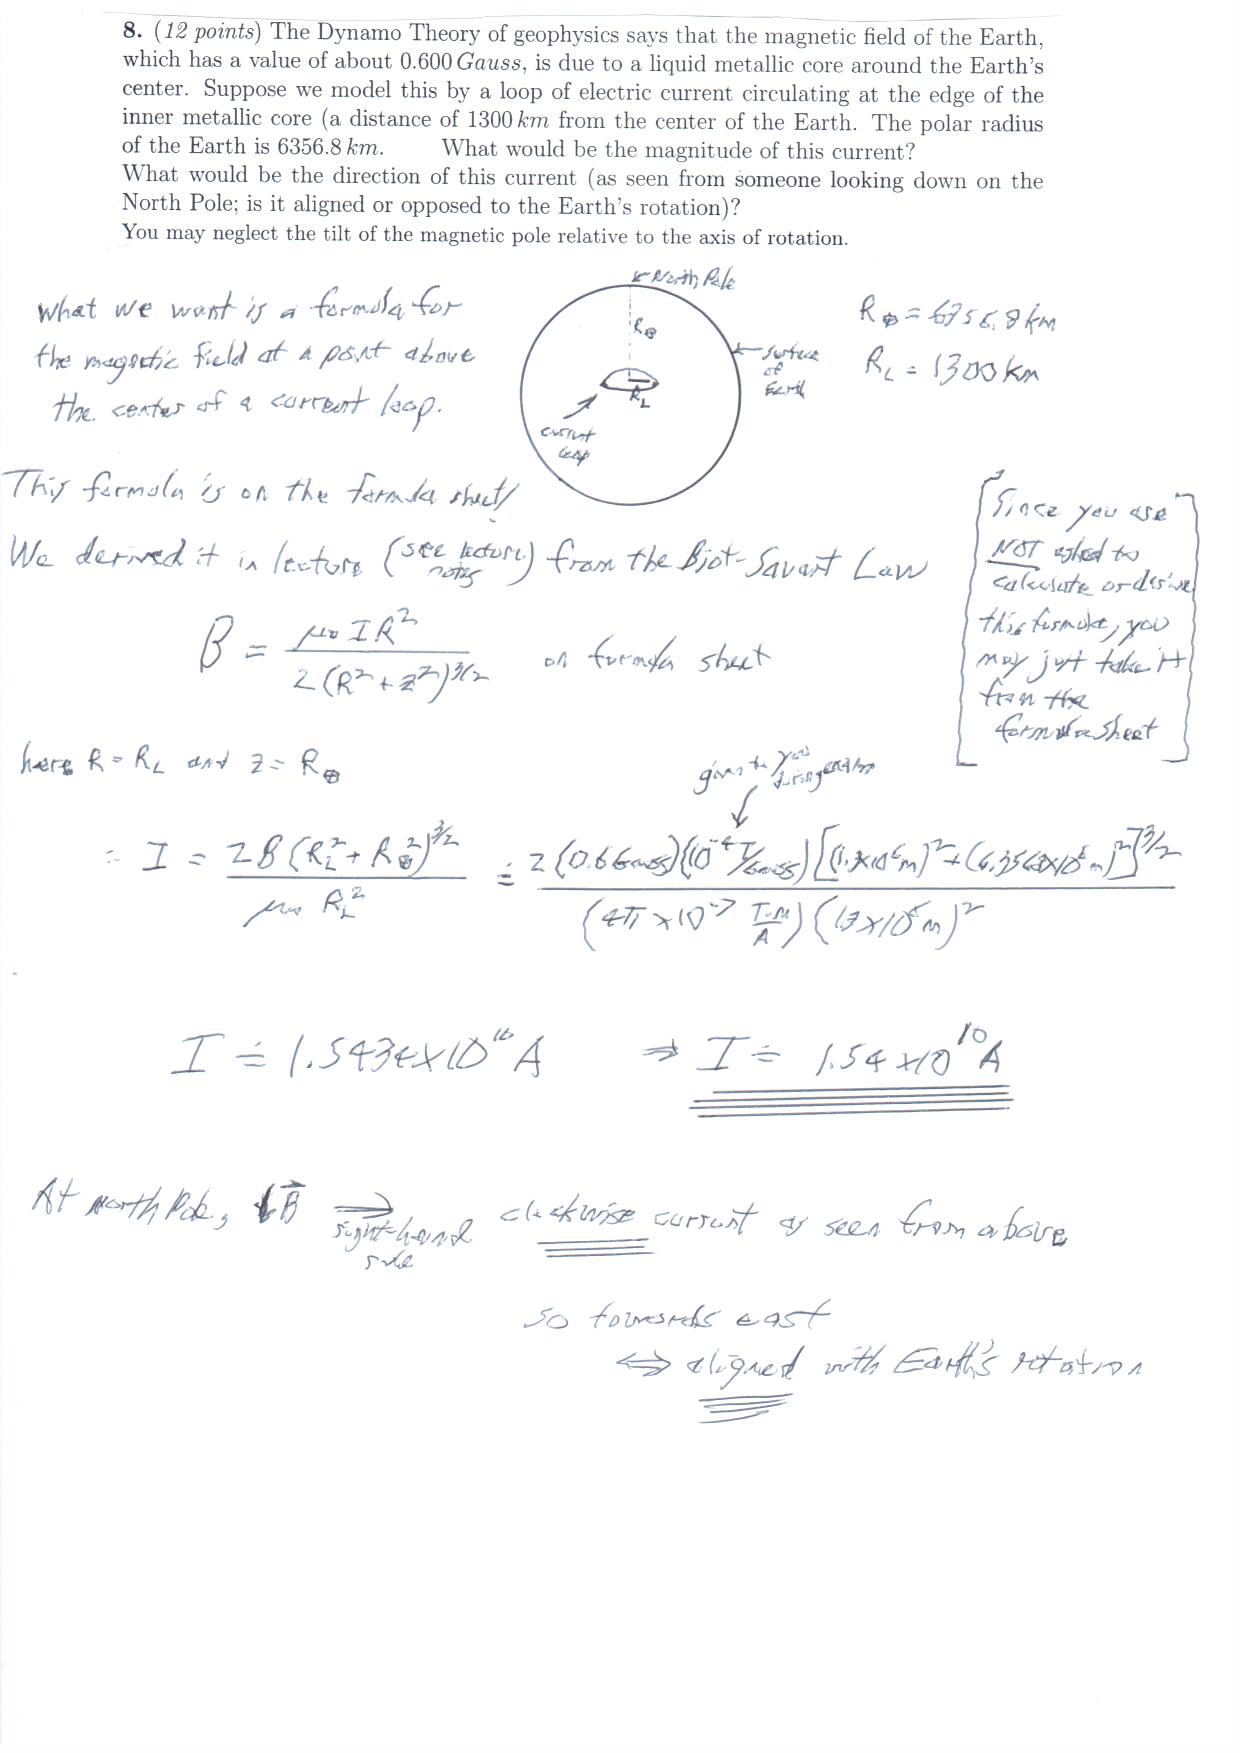 8. (12 points) The Dynamo Theory of geophysics says that the magnetic field of the Earth,
which has a value of about 0.600 Gauss, is due to a liquid metallic core around the Earth's
center. Suppose we model this by a loop of electric current circulating at the edge of the
inner metallic core (a distance of 1300 km from the center of the Earth. The polar radius
of the Earth is 6356.8 km. What would be the magnitude of this current?
What would be the direction of this current (as seen from someone looking down on the
North Pole; is it aligned or opposed to the Earth's rotation)?
You may neglect the tilt of the magnetic pole relative to the axis of rotation.
North Pole
What we want is a formula for
the magnetic field at a point above
the center of a current loop.
R⊕
surface
of
Earth
R_L
current
loop
R⊕ = 6356.8 km
R_L = 1300 km
This formula is on the formula sheet
We derived it in lecture (see lecture notes) from the Biot-Savart Law
[Since you are
NOT asked to
calculate or derive
this formula, you
may just take it
from the
formula sheet]
B = μ₀ I R² / 2 (R² + z²)^3/2 on formula sheet
here R = R_L and z = R⊕
given to you
during exam
∴ I = 2B (R_L² + R⊕²)^3/2 / μ₀ R_L² ≐ 2 (0.6 Gauss) (10⁻⁴ T/Gauss) [(1.3×10⁶ m)² + (6.3568×10⁶ m)²]^3/2 / (4π × 10⁻⁷ T·m/A) (1.3×10⁶ m)²
I ≐ 1.5434×10¹⁰ A ⇒ I ≐ 1.54 ×10¹⁰ A
At north Pole, ↓B⃗ ⇒ right-hand rule clockwise current as seen from above
so towards east
⇔ aligned with Earth's rotation